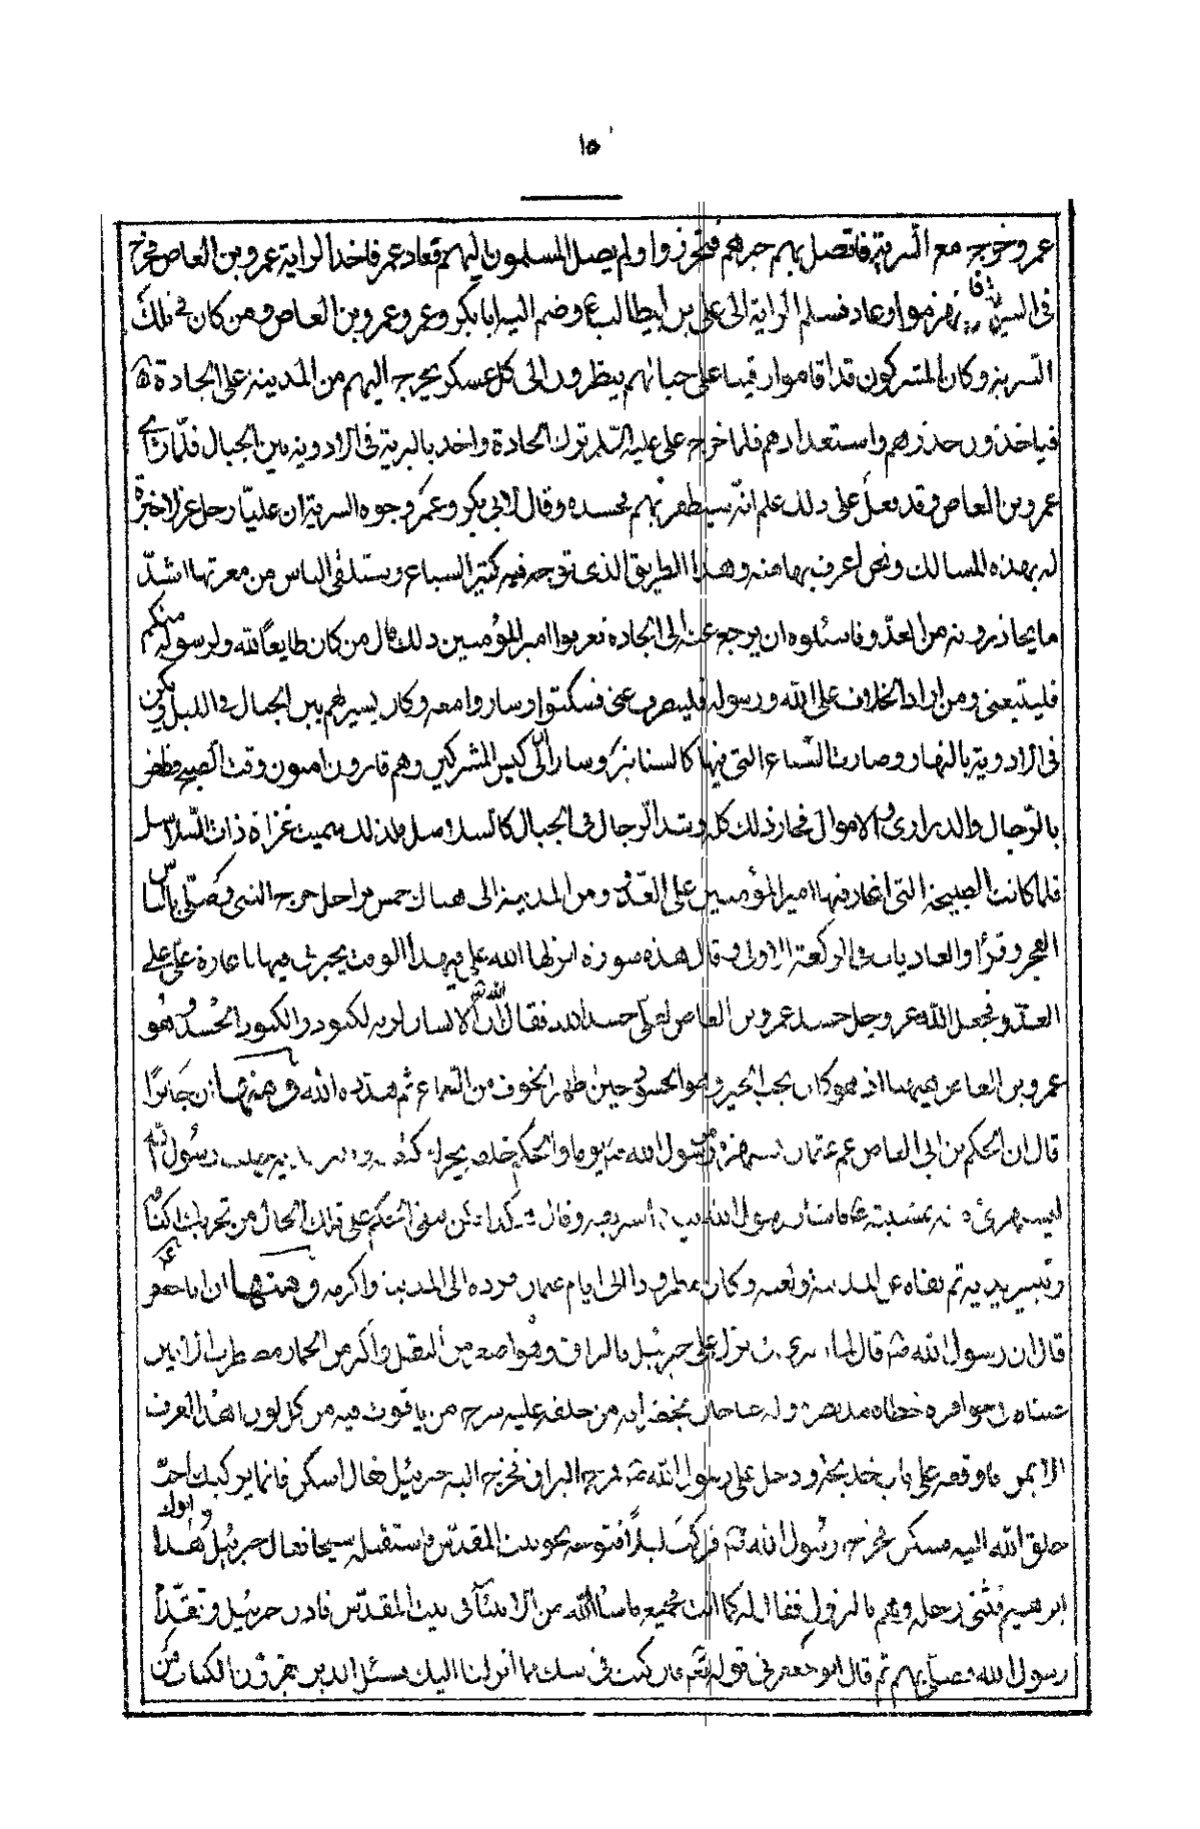 ١٥
عمر وخروجه مع السرية فاتصل بهم خبرهم فتحرزوا ولم يصل المسلمون اليهم فعاد عمر فاخذ الراية عمرو بن العاص فخرج
في السرية فانهزموا وعاد فسلم الراية الى علي بن ابيطالب ع وضم اليه ابابكر وعمر وعمرو بن العاص ومن كان في تلك
السرية وكان المشركون قد اقاموا رقيبا على جبالهم ينظرون الى كل عسكر يخرج اليهم من المدينة على الجادة
فياخذون حذرهم واستعدادهم فلما خرج علي عليه السلم ترك الجادة واخذ بالسرية في الاودية بين الجبال فلما راى
عمرو بن العاص وقد فعل علي ذلك علم انه سيظفر بهم فحسده وقال لابي بكر وعمر ووجوه السرية ان عليا رجل غر لا خبرة
له بهذه المسالك ونحن اعرف بها منه وهذا الطريق الذي توجه فيه كثير السباع وستلقى الناس من معرتها اشد
ما يحاذرونه من العدو فاسئلوه ان يرجع عنه الى الجادة فعرفوا امير المؤمنين ذلك قال من كان طايعا لله ولرسوله منكم
فليتبعني ومن اراد الخلاف على الله ورسوله فلينصرف عني فسكتوا وساروا معه وكان يسير بهم بين الجبال في الليل ويكمن
في الاودية بالنهار وصارت السباع التي فيها كالسنانير وسار الى ان كبس المشركين وهم قارون امنون وقت الصبح فظفر
بالرجال والذراري والاموال فحاز ذلك كله وشد الرجال في الحبال كالسلاسل فلذلك سميت غزاة ذات السلاسل
فلما كانت الصبيحة التي اغار فيها امير المؤمنين على العدو ومن المدينة الى هناك خمس مراحل خرج النبي ص فصلى بالناس
الفجر وقرأ والعاديات في الركعة الاولى وقال هذه سورة انزلها الله علي في هذا الوقت يخبرني فيها باغارة علي على
العدو فجعل الله عز وجل حسد عمرو بن العاص لعلي حسدا لله فقال ان الانسان لربه لكنود والكنود الحسود وهو
عمرو بن العاص هيهنا اذ هو كان يحب الخير وهو الحسود حين ظهر الخوف من السباع ثم هدده الله ومنها ان جابرا
قال ان الحكم بن ابي العاص عم عثمان يستهزء رسول الله يوما والحكم خلفه يحرك كتفيه رسول الله
رسول الله بيده وقال كذا على تلك الحال من تحريك اكتافه
يديه ثم نفاه عن المدينة ولعنه وكان مطرودا الى ايام عثمان فرده الى المدينة واكرمه ومنها ان ابا جعفر ع
قال ان رسول الله ص قال نزل علي جبرئيل بالبراق وهو اصغر من البغل واكبر من الحمار مضطرب الاذنين
عيناه في حوافره خطاه مد بصره وله جناحان من خلفه عليه سرج من ياقوت فيه من كل لون اهدب العرف
الايمن فاوقفه على باب خديجة ودخل على رسول الله ص فمرح البراق فخرج اليه جبرئيل فقال اسكن فانما يركبك احب
خلق الله اليه فسكن فخرج رسول الله ص فركب ليلا فتوجه نحو بيت المقدس فاستقبله شيخا فقال جبرئيل هذا ابوك
ابرهيم فثنى رجله وهم بالنزول فقال له كما انت فجمع ماشاالله من الانبيآء في بيت المقدس فاذن جبرئيل وتقدم
رسول الله فصلى بهم ثم قال ابو جعفر في قوله تعم فان كنت في شك مما انزلنا اليك فسئل الذين يقرؤن الكتاب من